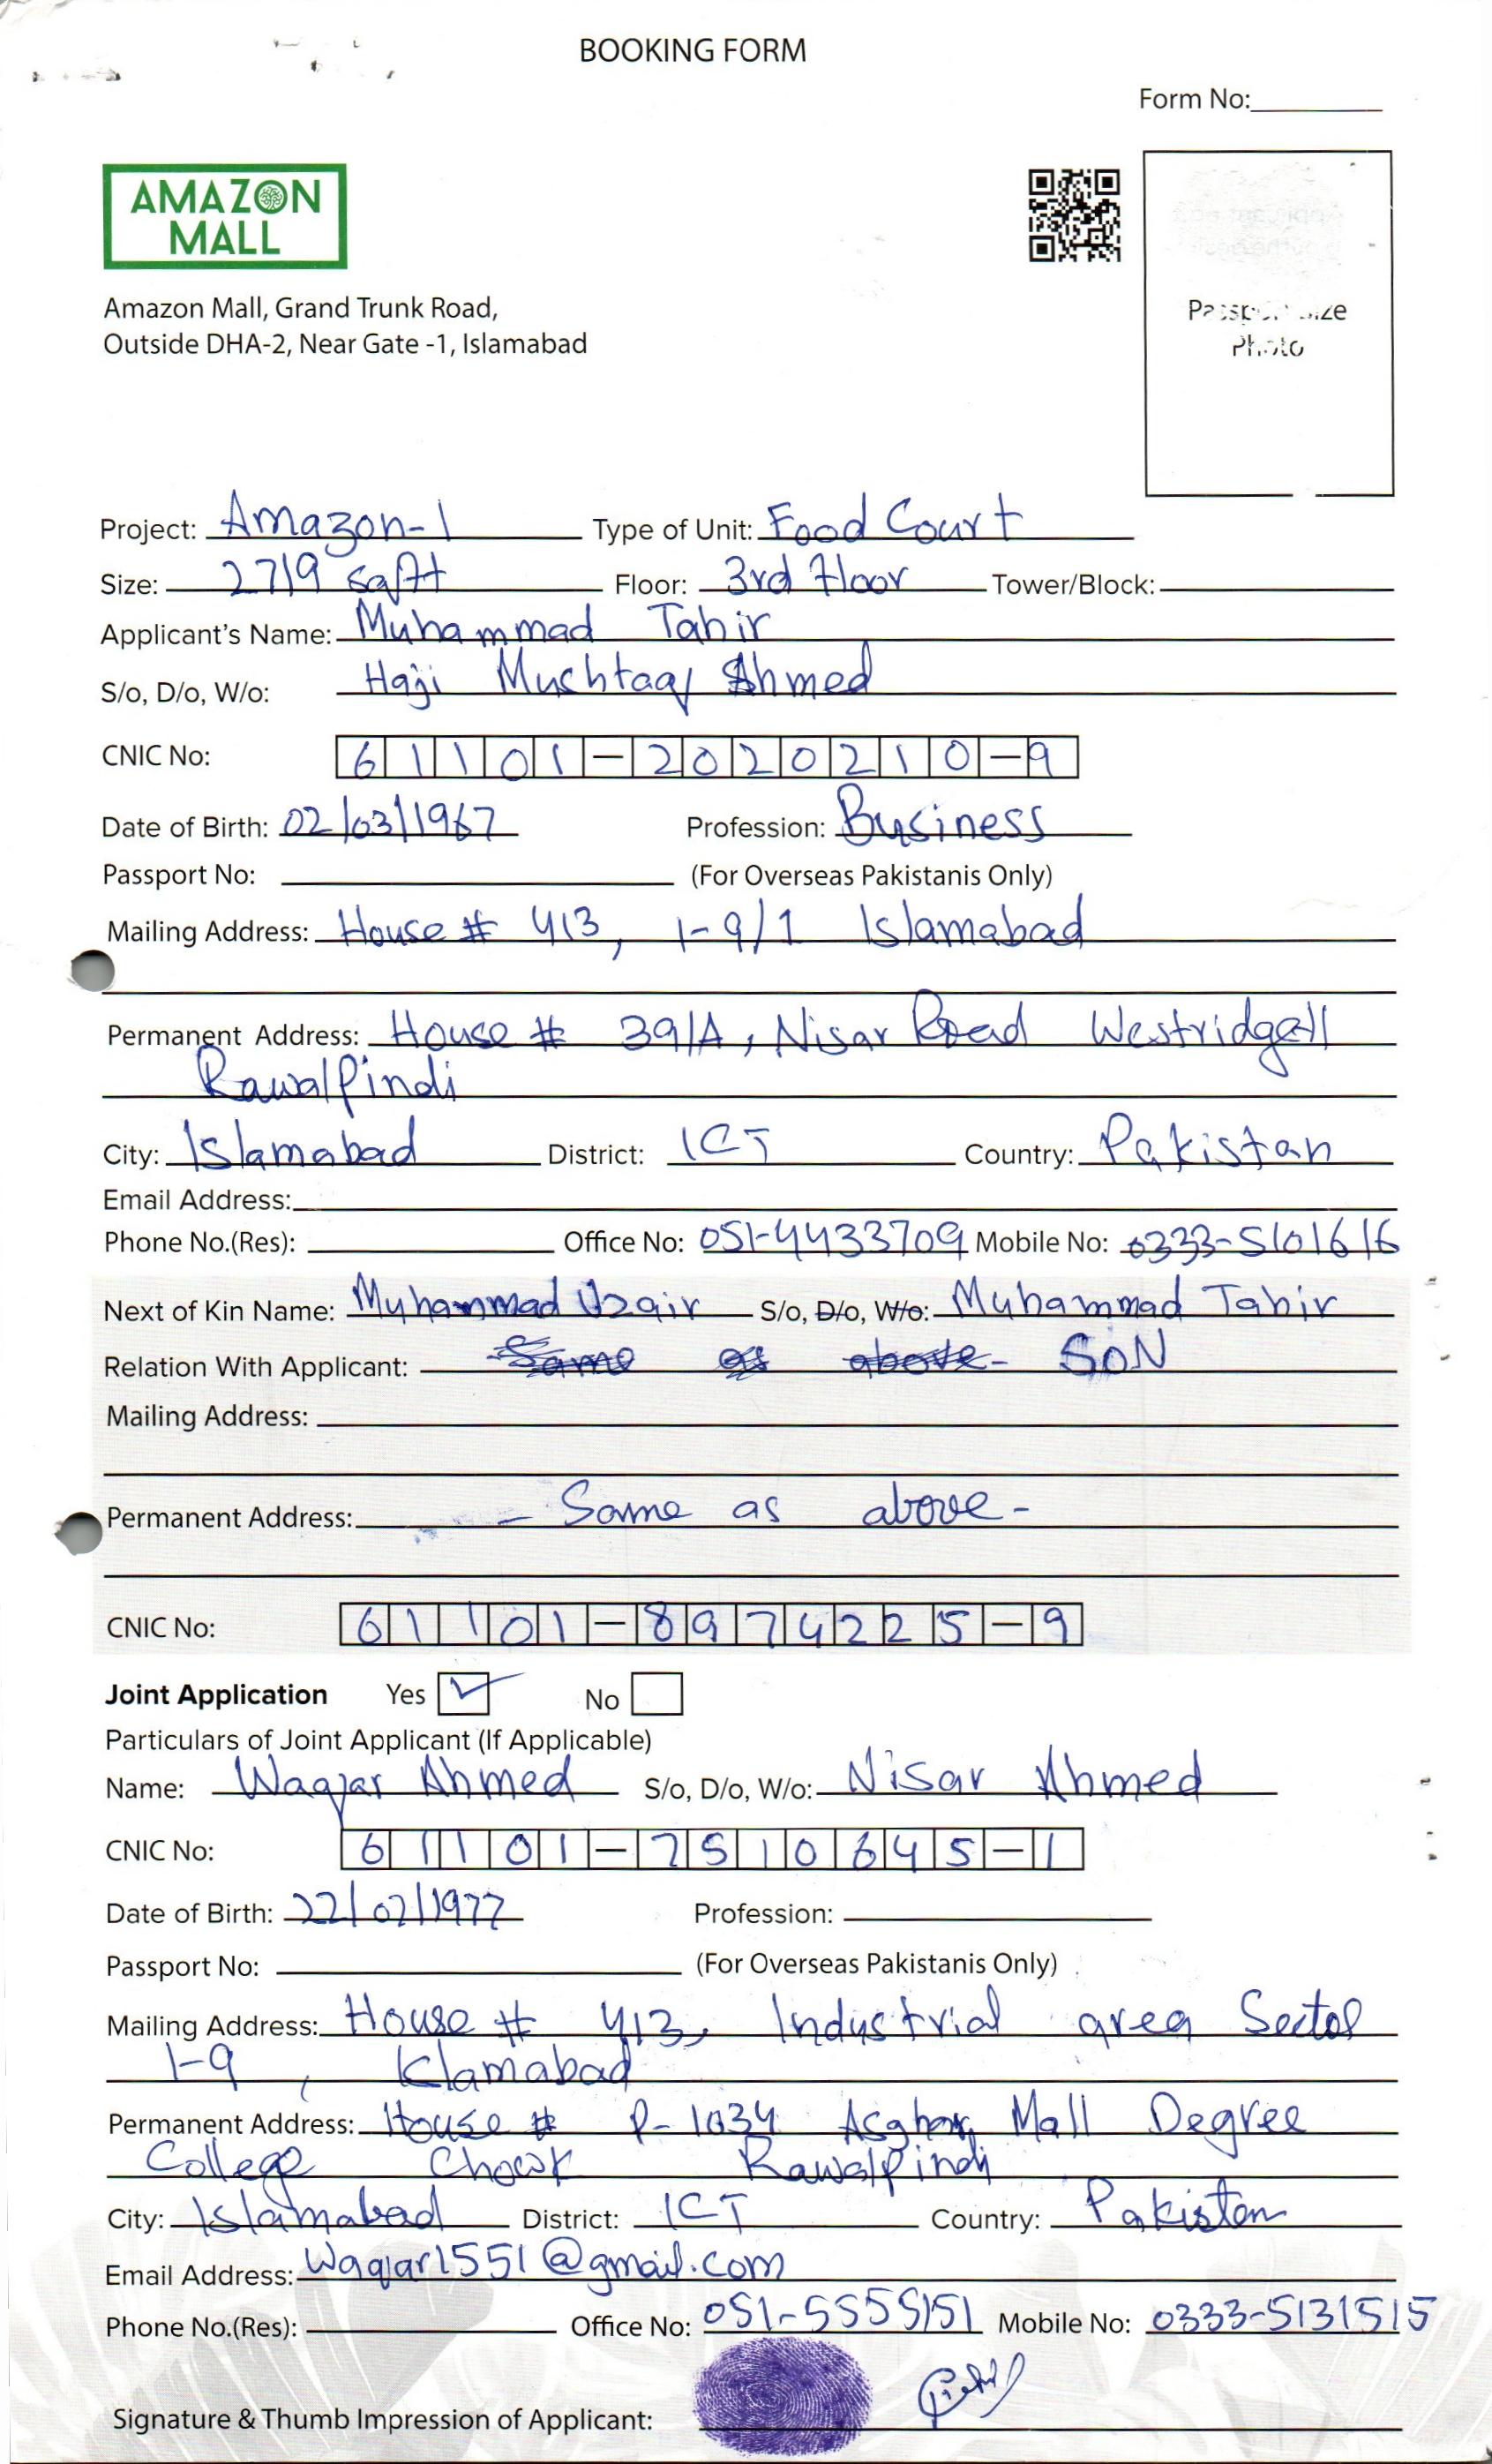 BOOKING FORM
Form No:
AMAZON
MALL
Amazon Mall, Grand Trunk Road,
Outside DHA-2, Near Gate -1, Islamabad
Photo
Project: Amazon-1 Type of Unit: Food Court
Size: 2719 sqft Floor: 3rd Floor Tower/Block:
Applicant's Name: Muhammad Tahir
S/o, D/o, W/o: Haji Mushtaq Ahmed
CNIC No: 61101-2020210-9
Date of Birth: 02/03/1967 Profession: Business
Passport No: (For Overseas Pakistanis Only)
Mailing Address: House # 413, I-9/1 Islamabad
Permanent Address: House # 391A, Nisar Road Westridge II
Rawalpindi
City: Islamabad District: ICT Country: Pakistan
Email Address:
Phone No.(Res): Office No: 051-4433709 Mobile No: 0333-5101616
Next of Kin Name: Muhammad Uzair S/o, D/o, W/o: Muhammad Tahir
Relation With Applicant: Same as above - SON
Mailing Address:
Permanent Address: - Same as above -
CNIC No: 61101-8974225-9
Joint Application Yes No
Particulars of Joint Applicant (If Applicable)
Name: Waqar Ahmed S/o, D/o, W/o: Nisar Ahmed
CNIC No: 61101-7510645-1
Date of Birth: 22/02/1977 Profession:
Passport No: (For Overseas Pakistanis Only)
Mailing Address: House # 413, Industrial area Sector
I-9, Islamabad
Permanent Address: House # P-1034 Asghar Mall Degree
College Chowk Rawalpindi
City: Islamabad District: ICT Country: Pakistan
Email Address: waqar1551@gmail.com
Phone No.(Res): Office No: 051-5555151 Mobile No: 0333-5131515
Signature & Thumb Impression of Applicant: